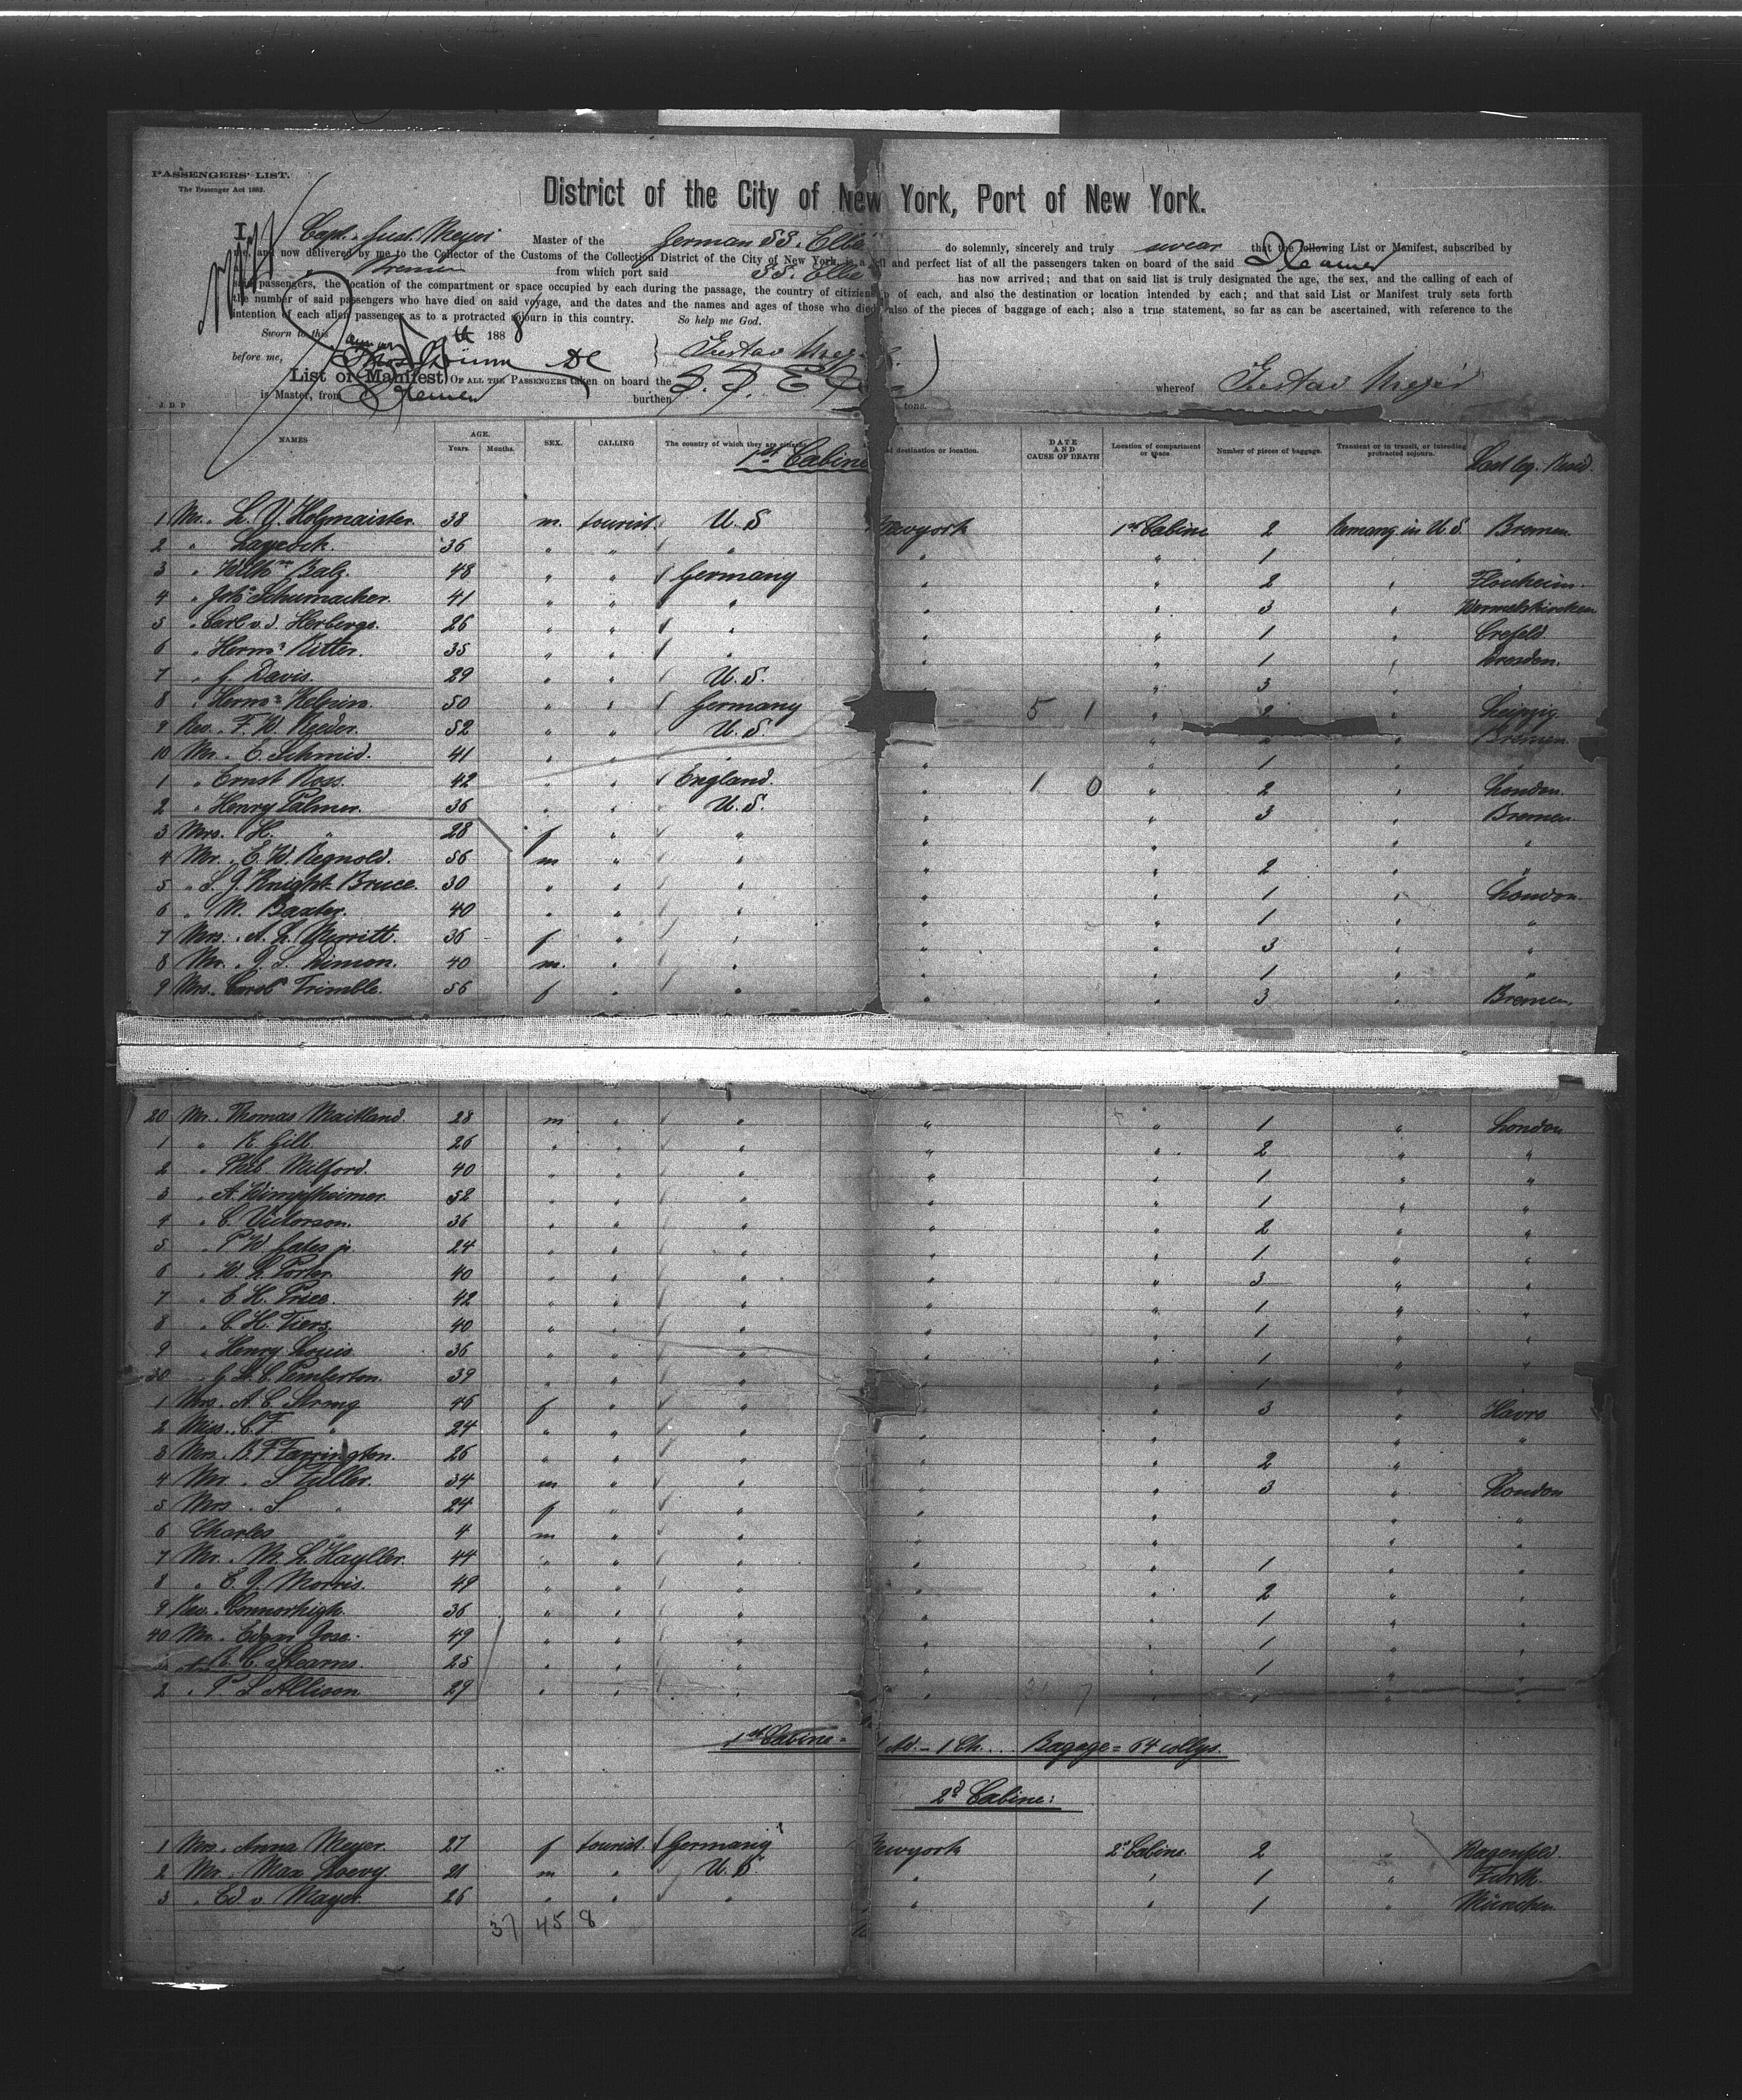 PASSENGERS' LIST.
The Passenger Act 1882.
District of the City of New York, Port of New York.
I, Capt. Gust. Meyer Master of the German SS. Elbe do solemnly, sincerely and truly swear that the following List or Manifest, subscribed by
me, and now delivered by me to the Collector of the Customs of the Collection District of the City of New York, is a full and perfect list of all the passengers taken on board of the said Steamer
Bremen from which port said SS. Elbe has now arrived; and that on said list is truly designated the age, the sex, and the calling of each of
said passengers, the location of the compartment or space occupied by each during the passage, the country of citizenship of each, and also the destination or location intended by each; and that said List or Manifest truly sets forth
the number of said passengers who have died on said voyage, and the dates and the names and ages of those who died also of the pieces of baggage of each; also a true statement, so far as can be ascertained, with reference to the
intention of each alien passenger as to a protracted sojourn in this country. So help me God.
Sworn to this 9th 1888
before me, Gustav Meyer
List or Manifest OF ALL THE PASSENGERS taken on board the S. S. Elbe whereof Gustav Meyer
is Master, from Bremen burthen tons.
J. D. P
NAMES AGE. Years. Months. SEX. CALLING The country of which they are citizens destination or location. DATE AND CAUSE OF DEATH Location of compartment or space. Number of pieces of baggage. Transient or in transit, or intending protracted sojourn. Last leg. Resid.
1st Cabine
1 Mr. L. Y. Holzmaister. 38 m. tourist U. S Newyork 1st Cabine 2 Remang. in U. S. Bremen
2 " Laycock. 36 " " " " " 1 " "
3 " Wilhm Balz. 48 " " Germany " " 2 " Flonheim.
4 " Johs Schumacher. 41 " " " " " 3 " Wermelskirchen
5 " Carl v. d. Herbergs. 26 " " " " " 1 " Crefeld.
6 " Herms Ritter. 35 " " " " " 1 " Dresden.
7 " G. Davis. 29 " " U. S. " 3 " "
8 " Herms 50 " " Germany 5 1 " 2 " Leipzig
9 Rev. F. W. Reeder. 52 " " U. S. " " " Bremen.
10 Mr. E. Schmid. 41 " " " " " 1 " "
1 " Ernst Ross. 42 " " England. " 1 0 " 2 " London.
2 " Henry Palmer. 36 " " U. S. " " 3 " Bremen.
3 Mrs. H. " 28 f " " " " " "
4 Mr. E. W. Regnold. 56 m " " " " 2 " "
5 " S. J. Knight-Bruce. 30 " " " " " 1 " London.
6 " M. Baxter. 40 " " " " " 1 " "
7 Mrs. A. L. Merritt. 36 f " " " " 3 " "
8 Mr. J. S. Dimon. 40 m. " " " " 1 " "
9 Mrs. Carol. Trimble. 56 f " " " " 3 " Bremen.
20 Mr. Thomas Maitland. 28 m " " " " 1 " London
1 " R. Gill. 26 " " " " " 2 " "
2 " Phil. Milford. 40 " " " " " 1 " "
3 " A. Wimpfheimer. 52 " " " " " 1 " "
4 " C. Victorson. 36 " " " " " 2 " "
5 " P. W. Gates jr. 24 " " " " " 1 " "
6 " W. L. Porter. 40 " " " " " 3 " "
7 " E. H. Price. 42 " " " " " 1 " "
8 " C. H. Tiers. 40 " " " " " 1 " "
9 " Henry Louis 36 " " " " " 1 " "
30 " G. St. C. Pemberton. 39 " " " " " 1 " "
1 Mrs. A. C. Strong 45 f " " " " 3 " Havre
2 Miss. C. F. " 24 " " " " " " "
3 Mrs. B. F. Farrington. 26 " " " " " 2 " "
4 Mr. S. Fuller. 34 m " " " " 3 " London
5 Mrs. S. " 24 f " " " " " "
6 Charles " 4 m " " " " " "
7 Mr. M. L. Hayller. 44 " " " " " 1 " "
8 " E. J. Morris. 49 " " " " " 2 " "
9 Rev. Connorhigh. 36 " " " " " 1 " "
40 Mr. Edgar Jose. 49 " " " " " 1 " "
C. Stearns. 25 " " " " " 1 " "
2 " P. S. Allison 29 " " " " " " "
1st Cabine = Ad. - 1 Ch. ... Bagage = 64 collys.
2d Cabine:
1 Mrs. Anna Meyer. 27 f tourist Germany Newyork 2d Cabine 2 " Hagenfeld.
2 Mr. Max Loevy. 21 m " U. S. " " 1 " Fürth.
3 " Ed. v. Mayer. 26 " " " " " 1 " München
37 45 8